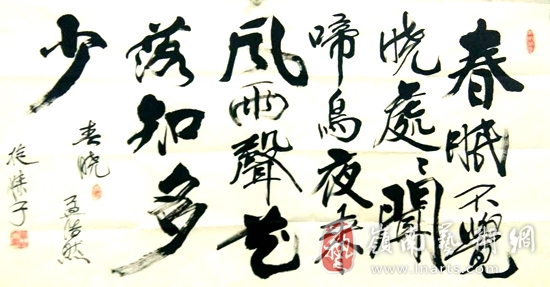 春眠不覺
晓處々聞
啼鳥夜来
风雨聲花
落知多
少
春晓 孟浩然
子
嶺南藝術網
www.lnarts.com